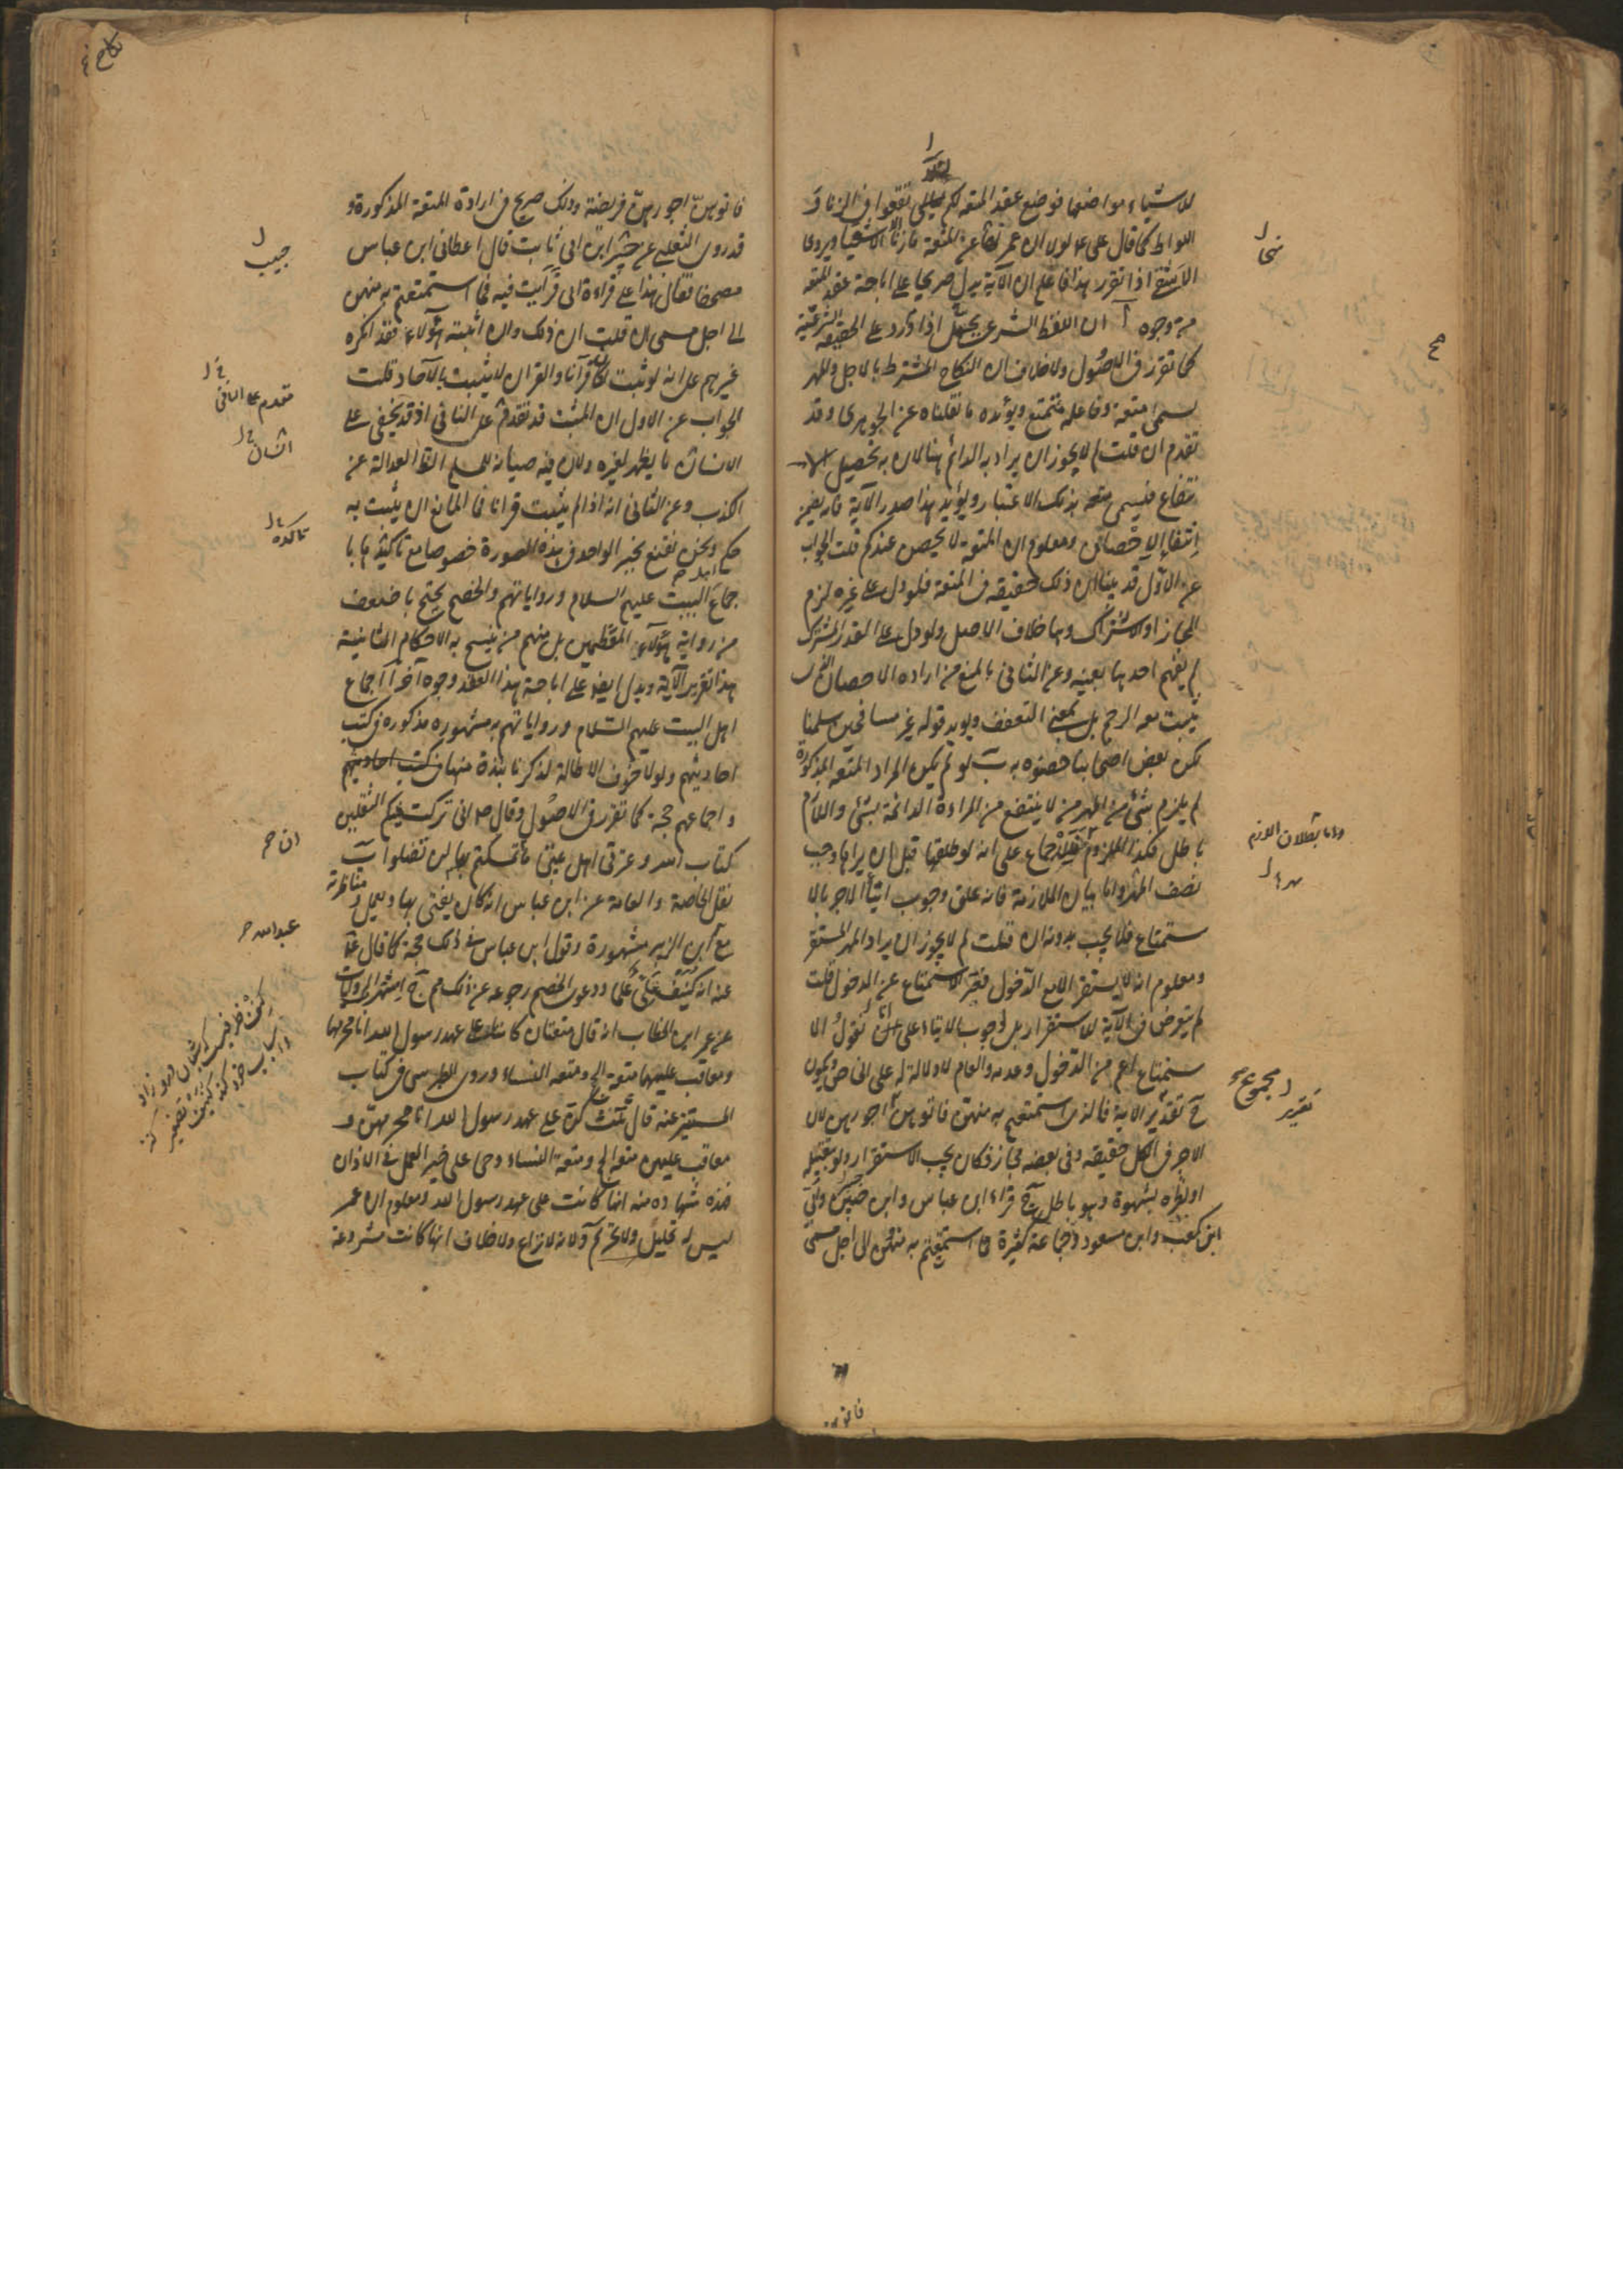 للاشياء مواضعها فوضع عقد المتعه لكم لئلا تقعوا في الزنا و
اللواط كما قال علي ع لولا ان عمر نهى عن المتعة ما زنا الا شقي ويروى
الا شفى اذا تقرر هذا فاعلم ان الآية تدل صريحا على اباحة عقد المتعه
من وجوه آ ان اللفظ الشرعي يحمل اذا ورد على الحقيقة الشرعية
كما تقرر في الاصول ولا خلاف ان النكاح المشترط بالاجل والمهر
يسمى متعة وفاعله متمتع ويؤيده ما نقلناه عن الجوهري وقد
تقدم ان قلت لم لا يجوز ان يراد به الدائم هنا لان به تحصيل الا
نتفاع فيسمى متعه بذلك الاعتبار ويؤيد هذا صدر الآية فانه يضمن
انتفاء الاحصان ومعلوم ان المتعة لا يحصن عندكم قلت الجواب
عن الاول قد بينا ان ذلك حقيقة في المتعة فلو دل على غيره لزم
المجاز او الاشتراك وهما خلاف الاصل ولو دل على القدر المشترك
لم يفهم احدهما بعينه وعن الثاني بالمنع من ارادة الاحصان الذي
يثبت معه الرجم بل بمعنى التعفف ويؤيد قوله غير مسافحين سلمنا
لكن بعض اصحابنا حصنوه به ب لو لم يكن المراد المتعه المذكورة
لم يلزم شئ من المهر من لا ينتفع من المراءة الدائمة بشئ واللازم
باطل فكذا الملزوم للاجماع على انه لو طلقها قبل ان يراها وجب
نصف المهر واما بيان الملازمة فانه علق وجوب ايتاء الاجر بالا
ستمتاع فلا يجب بدونه ان قلت لم لا يجوز ان يراد المهر المستقر
ومعلوم انه لا يستقر الا مع الدخول فعبر بالاستمتاع عن الدخول قلت
لم يتعرض في الآية للاستقرار بل لوجوب الايتاء على انا نقول الا
ستمتاع اعم من الدخول وعدمه والعام لا دلالة له على الخاص ويكون
ح تقدير الآية فالذي استمتعتم به منهن فاتوهن اجورهن لان
الاجر في الكل حقيقه وفي بعضه مجاز فكان يجب الاستقرار ولو بتقبيله
او نظره بشهوة وهو باطل ج قراءة ابن عباس وابن جبير وابي
ابن كعب وابن مسعود وجماعة كثيرة فما استمتعتم به منهن الى اجل مسمى
واما بطلان اللازم
تقرير مجموع
فاتوهن
فاتوهن اجورهن فريضة وذلك صريح في ارادة المتعة المذكورة و
قد روى الثعلبي عن ابن ابي ثابت قال اعطاني ابن عباس
مصحفا فقال هذا على قراءة ابي فرأيت فيه فما استمتعتم به منهن
الى اجل مسمى ان قلت ان ذلك وان اثبته هؤلاء فقد انكره
غيرهم على انه لو ثبت لكان قرآنا والقرآن لا يثبت بالآحاد قلت
الجواب عن الاول ان المثبت قد تقدم على النافي اذ قد يخفى على
الانسان ما يظهر لغيره ولان فيه صيانة للمسلم الظاهر العدالة عن
الكذب وعن الثاني انه اذا لم يثبت قرانا فما المانع ان يثبت به
حكم ونحن نقنع بخبر الواحد في هذه الصورة خصوصا مع تاكيده با
جماع اهل البيت عليهم السلام ورواياتهم والخصم يحتج باضعف
من رواية هؤلاء المعظمين بل منهم من ينسخ به الاحكام الثابتة
هذا تقرير الآية ويدل ايضا على اباحة هذا العقد وجوه آخر آ اجماع
اهل البيت عليهم السلام ورواياتهم به مشهوره مذكوره في كتب
احاديثهم ولولا خوف الاطالة لذكرنا نبذة منها
واجماعهم حجة كما تقرر في الاصول وقال ص اني تركت فيكم الثقلين
كتاب الله وعترتي اهل بيتي ما تمسكتم بهما لن تضلوا ب
نقل الخاصة والعامة عن ابن عباس انه كان يفتي بها ويعمل ومناظرته
مع ابن الزبير مشهورة وقول ابن عباس في ذلك حجة كما قال
عنه انه كنيف ملئ علما ودعوى الخصم رجوعه عن ذلك ج اشتهر الروايات
عن عمر ابن الخطاب انه قال متعتان كانتا على عهد رسول الله انا محرمهما
ومعاقب عليهما متعة الحج ومتعه النساء وروى الطبرسي في كتاب
المستنير عنه قال ثلث كن على عهد رسول الله انا محرمهن و
معاقب عليهن متعة الحج ومتعة النساء وحي على خير العمل في الاذان
فهذه شهادة منه انها كانت على عهد رسول الله ومعلوم ان عمر
ليس له تحليل ولا تحريم د لانه لا نزاع ولا خلاف انها كانت مشروعة
حبيب
مقدم على النافي
انسان
تاكده
عبدالله